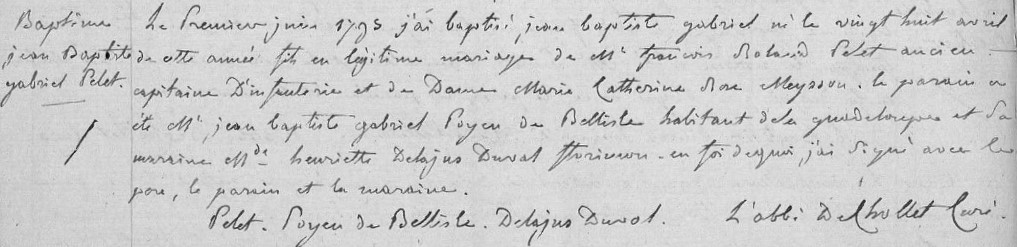 Baptême
jean Baptiste
gabriel Pelet.
Le Premier juin 1793 j'ai baptisé, jean baptiste gabriel né le vingt huit avril
de cette année fils en légitime mariage de Mr françois Roland Pelet ancien
capitaine D'infanterie et de Dame Marie Catherine Rose Meysson. le parain a
été Mr jean baptiste gabriel Poyen de Bellisle habitant dela guadeloupe et Sa
maraine Mde henriette Delajus Duval en foi dequoi, j'ai Signé avec le
pere, le parain et la maraine.
Pelet. Poyen de Bellisle. Delajus Duval. L'abbé Curé.